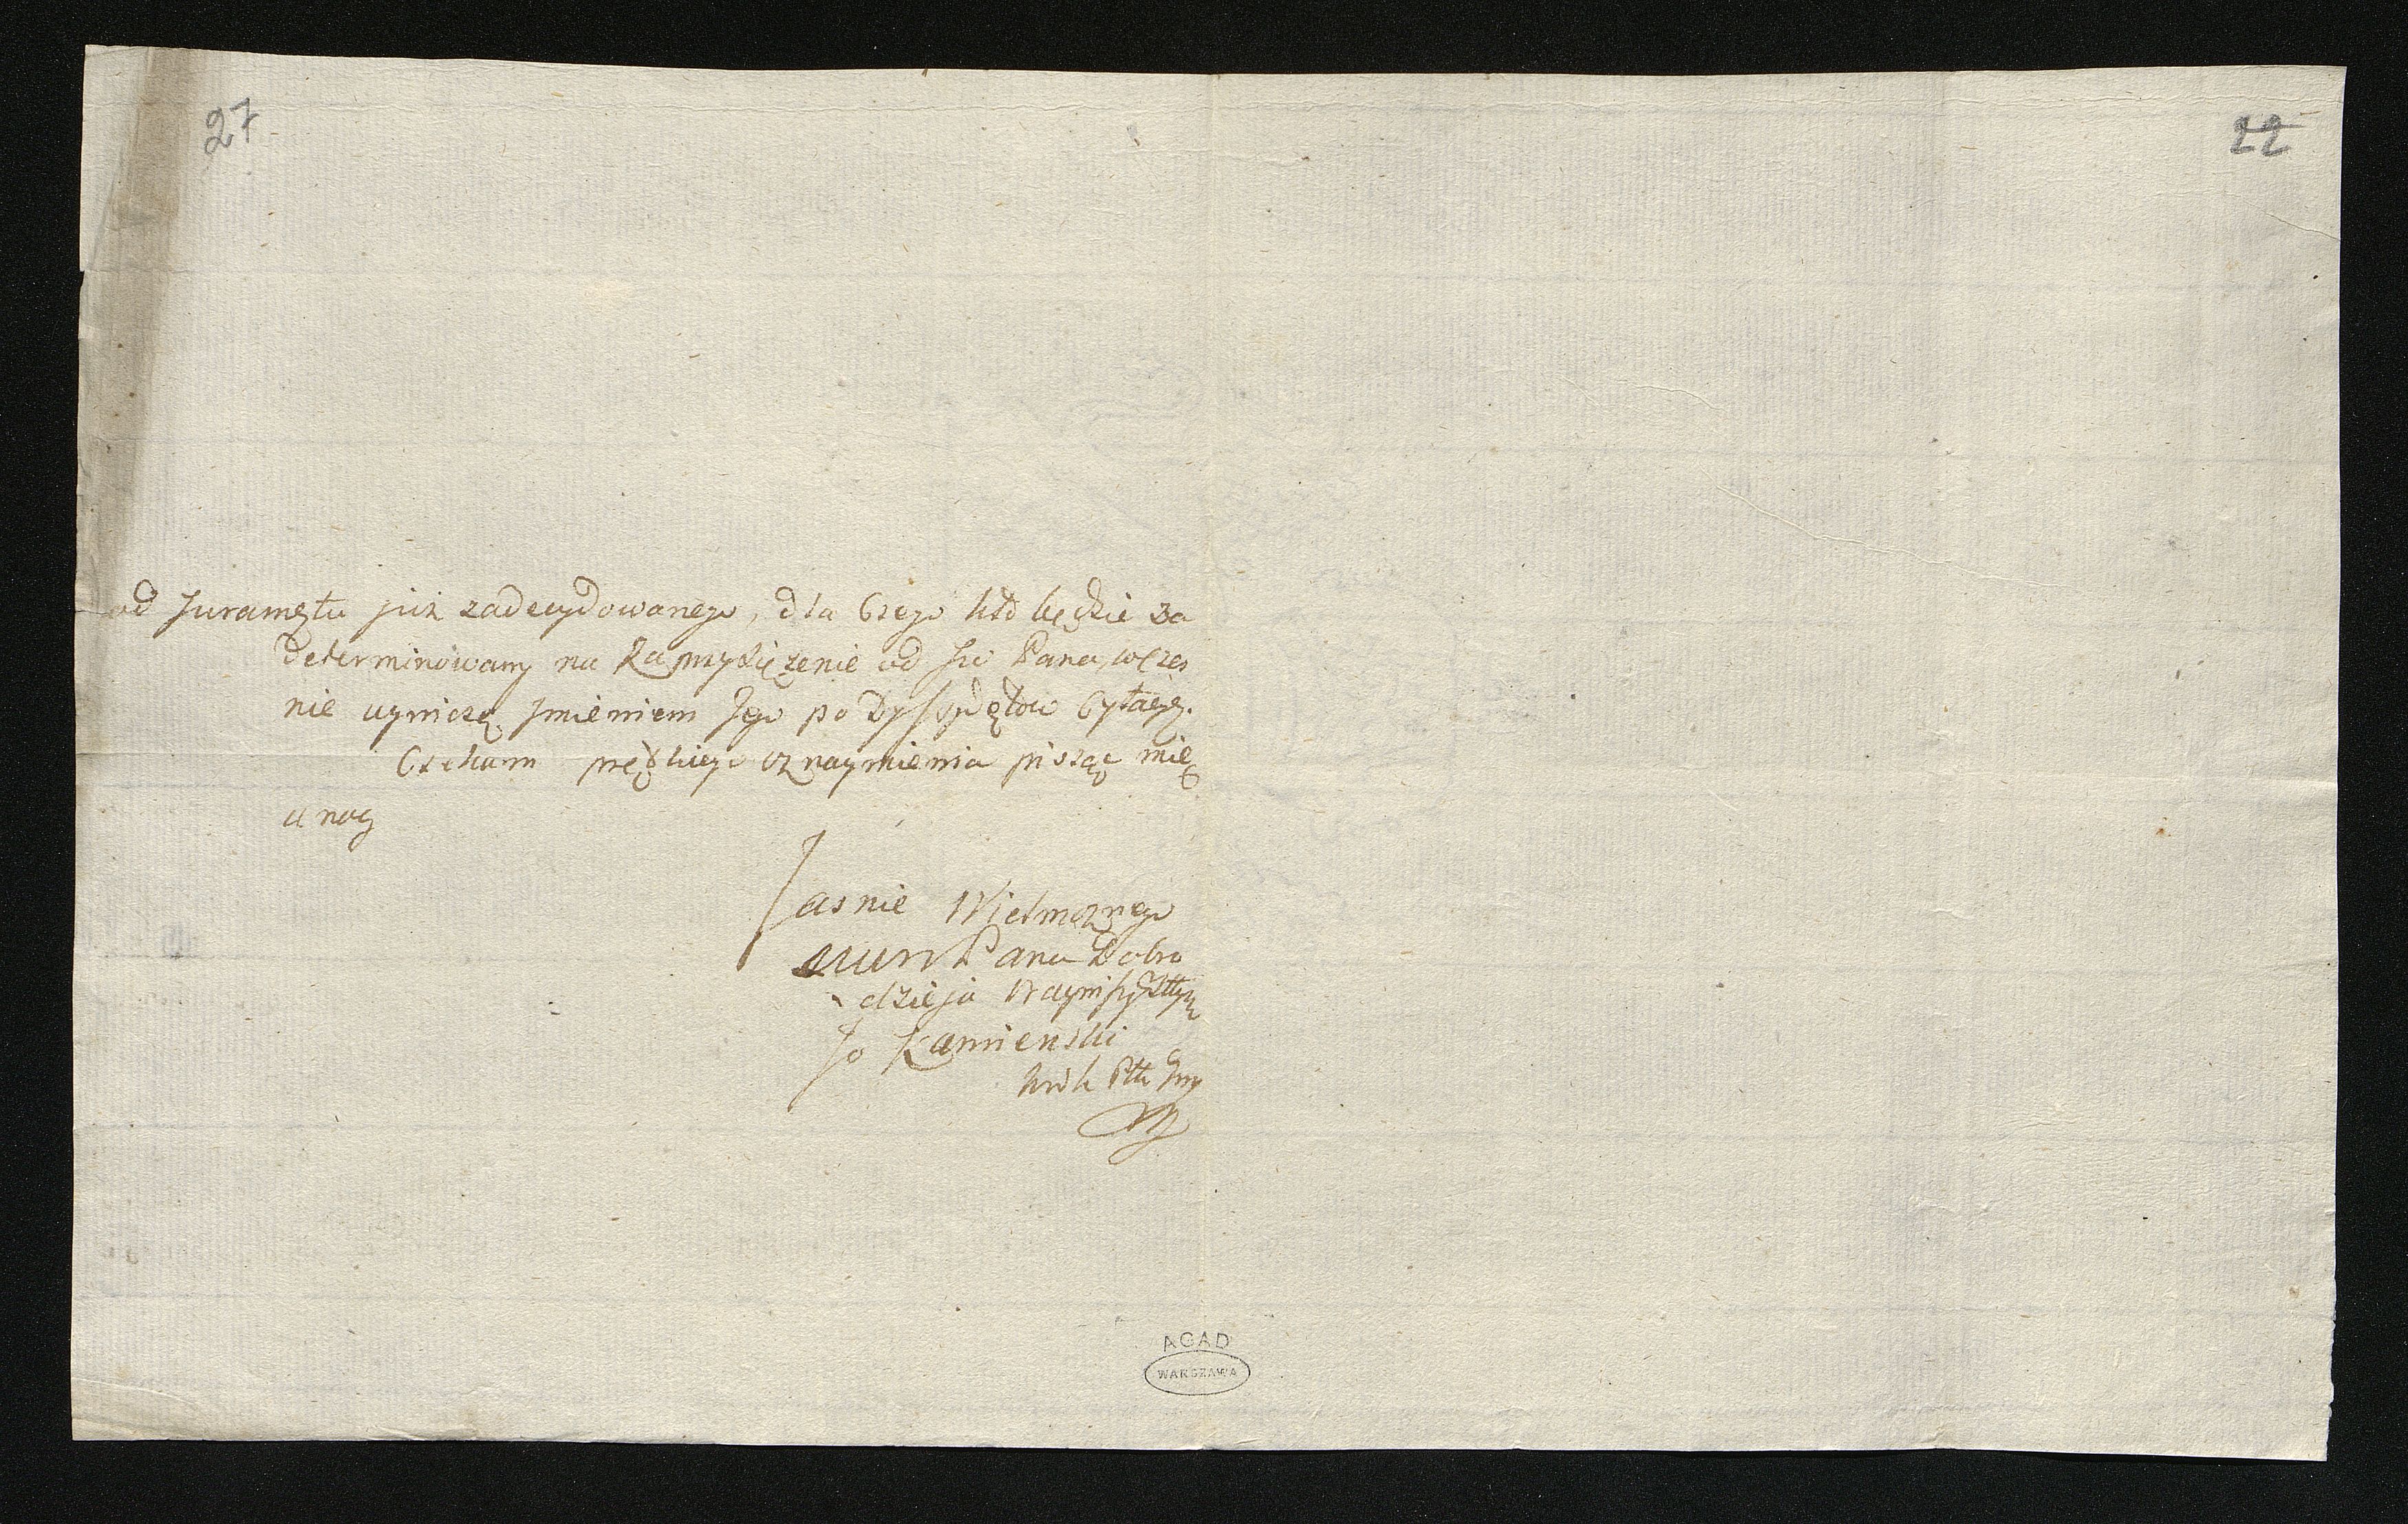 27
22
od Juramętu już zadecydowanego, dla Czego kto będzie za
determinowany na Zaprzysiężenie od Jw Pana, wczes
nie uyniczę, Jmieniem Jego po Dyspozytow
Czekam prędkiego oznaymienia pisząc mię
u nog
Jasnie Wielmożnego
Pana Dobro
dzieja
Jo Kamienski
AGAD
WARSZAWA